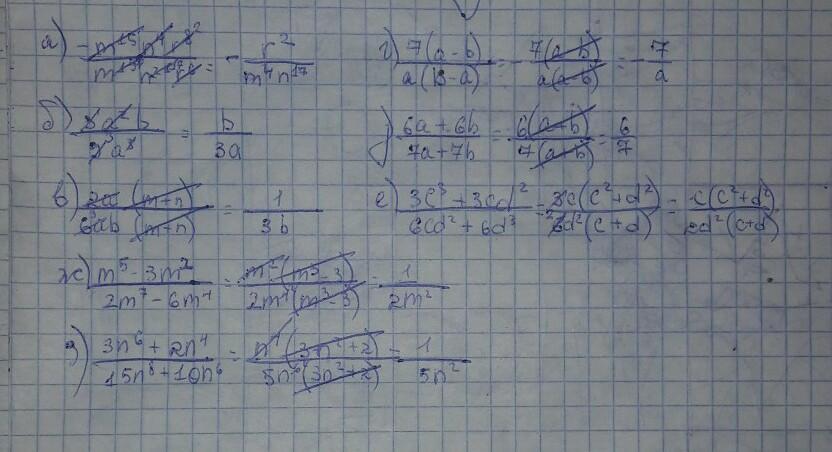 а) = - r² / m⁴n¹⁷
г) 7(a-b) / a(b-a) = - 7(a-b) / a(a-b) = - 7 / a
б) 3a²b / 9a³ = b / 3a
д) 6a+6b / 7a+7b = 6(a+b) / 7(a+b) = 6 / 7
в) 2a(m+n) / 6ab(m+n) = 1 / 3b
е) 3c³+3cd² / 6cd²+6d³ = 3c(c²+d²) / 6d²(c+d) = c(c²+d²) / 2d²(c+d)
ж) m⁵-3m² / 2m⁷-6m⁴ = m²(m³-3) / 2m⁴(m³-3) = 1 / 2m²
з) 3n⁶+2n⁴ / 15n⁸+10n⁶ = n⁴(3n²+2) / 5n⁶(3n²+2) = 1 / 5n²